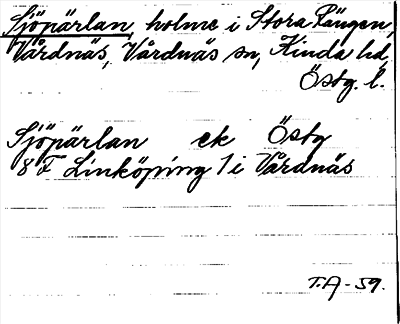 Sjöpärlan, holme i Stora Rängen,
Vårdnäs, Vårdnäs sn, Kinda hd,
Östg. l.
Sjöpärlan ek Östg
8 F Linköping 1 i Vårdnäs
T.A-59.